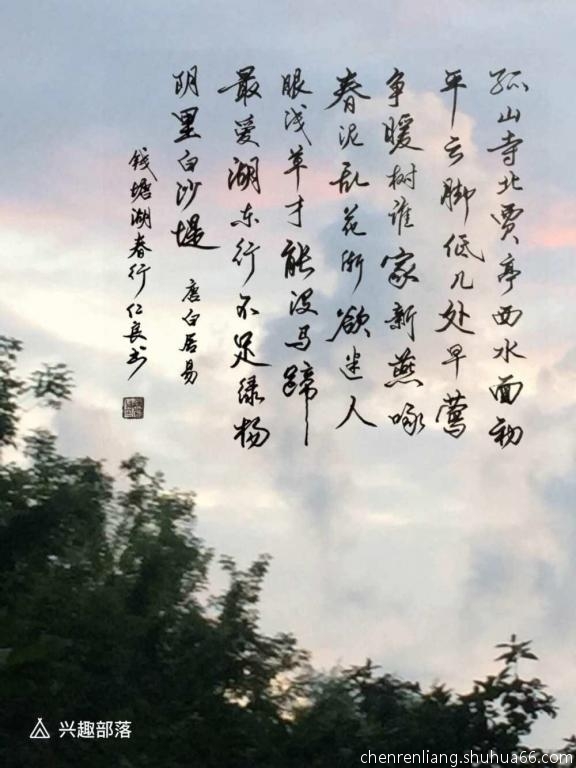 孤山寺北贾亭西水面初
平云脚低几处早莺
争暖树谁家新燕啄
春泥乱花渐欲迷人
眼浅草才能没马蹄
最爱湖东行不足绿杨
阴里白沙堤
唐白居易
钱塘湖春行仁良书
兴趣部落
chenrenliang.shuhua66.com